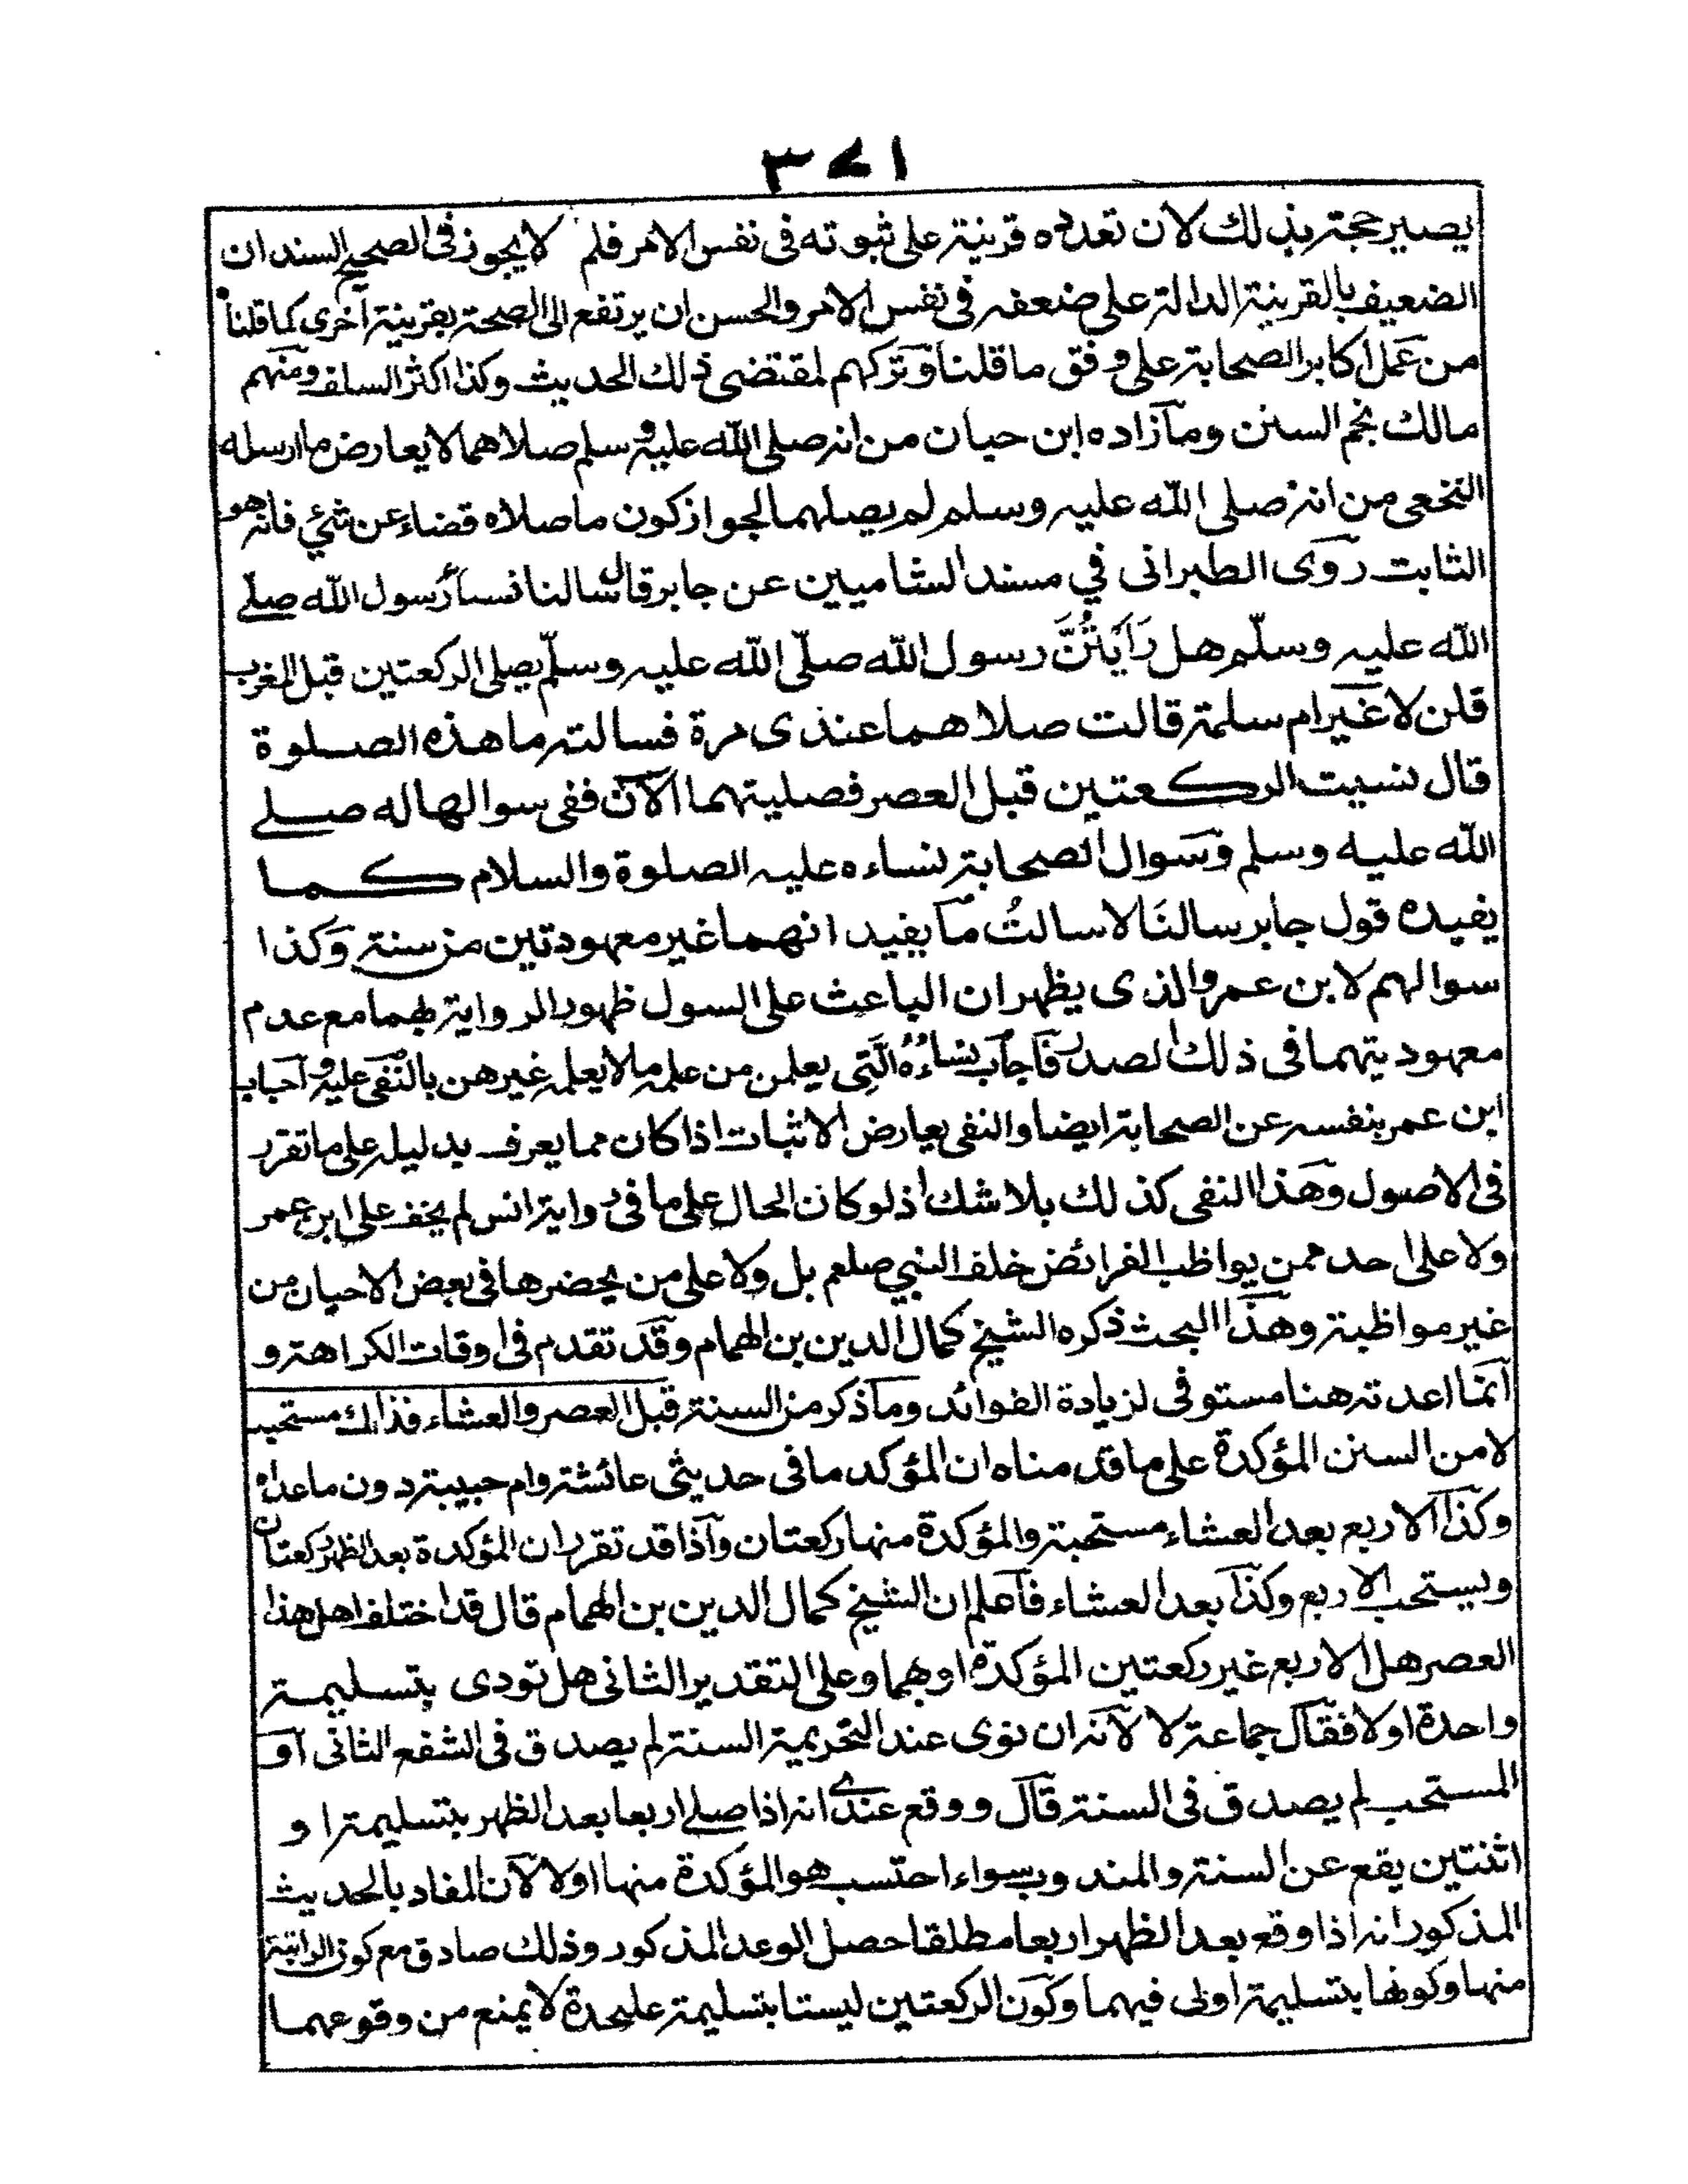 ٣٧١
يصير حجة بذلك لان تعدده قرينة على ثبوته فى نفس الامر فلم لا يجوز فى الصحيح السند ان
الضعيف بالقرينة الدالة على ضعفه فى نفس الامر والحسن ان يرتفع الى الصحة بقرينة اخرى كما قلنا
من عمل اكابر الصحابة على وفق ما قلنا وتركهم لمقتضى ذلك الحديث وكذا اكثر السلف ومنهم
مالك نجم السنن وما زاده ابن حبان من انه صلى الله عليه وسلم صلاهما لا يعارض ما ارسله
النخعى من انه صلى الله عليه وسلم لم يصلهما لجواز كون ما صلاه قضاء عن شئ فانه هو
الثابت روى الطبرانى في مسند الشاميين عن جابر قال سالنا نساء رسول الله صلے
الله عليه وسلّم هل رَاَيْتُنَّ رسول الله صلّى الله عليه وسلّم يصلى الركعتين قبل المغرب
قلن لا غير ام سلمة قالت صلاهما عندى مرة فسالته ما هذه الصلوة
قال نسيت الركعتين قبل العصر فصليتهما الآن ففى سوالها له صلے
الله عليه وسلم وسوال الصحابة نساءه عليه الصلوة والسلام كما
يفيده قول جابر سالنَا لا سالتُ ما يفيد انهما غير معهودتين من سنته وكذا
سوالهم لابن عمر والذى يظهر ان الباعث على السول ظهور الرواية بهما مع عدم
معهوديتهما فى ذلك الصدر فاجاب نساءُهُ الَّتِى يعلمن من علمه ما لا يعلمه غيرهن بالنفى عليه واجاب
ابن عمر بنفسه عن الصحابة ايضا والنفى يعارض الاثبات اذا كان مما يعرف بدليله على ما تقرر
فى الاصول وهذا النفى كذلك بلا شك اذ لو كان الحال على ما فى رواية انس لم يخف على ابن عمر
ولا على احد ممن يواظب الفرائض خلف النبي صلعم بل ولا على من يحضرها فى بعض الاحيان من
غير مواظبة وهذا البحث ذكره الشيخ كمال الدين بن الهمام وقد تقدم فى اوقات الكراهة و
انما اعدته هنا مستوفى لزيادة الفوائد وما ذكر من السنة قبل العصر والعشاء فذلك مستحب
لا من السنن المؤكدة على ما قدمناه ان المؤكد ما فى حديثى عائشة وام حبيبة دون ما عداه
وكذا الاربع بعد العشاء مستحبة والمؤكدة منها ركعتان واذا قد تقرر ان المؤكدة بعد الظهر ركعتان
ويستحب الاربع وكذا بعد العشاء فاعلم ان الشيخ كمال الدين بن الهمام قال قد اختلف اهل هذا
العصر هل الاربع غير ركعتين المؤكدة او بهما وعلى التقدير الثانى هل تودى بتسليمة
واحدة اولا فقال جماعة لا لانه ان نوى عند التحريمة السنة لم يصدق فى الشفع الثانى او
المستحب لم يصدق فى السنة قال ووقع عندے انه اذا صلے اربعا بعد الظهر بتسليمة او
اثنتين يقع عن السنة والمندوب سواء احتسب هو المؤكدة منها اولا لان المفاد بالحديث
المذكور انه اذا وقع بعد الظهر اربعا مطلقا حصل الوعد المذكور وذلك صادق مع كون الراتبة
منها وكونها بتسليمة اولى فيهما وكون الركعتين ليستا بتسليمة عليحدة لا يمنع من وقوعهما